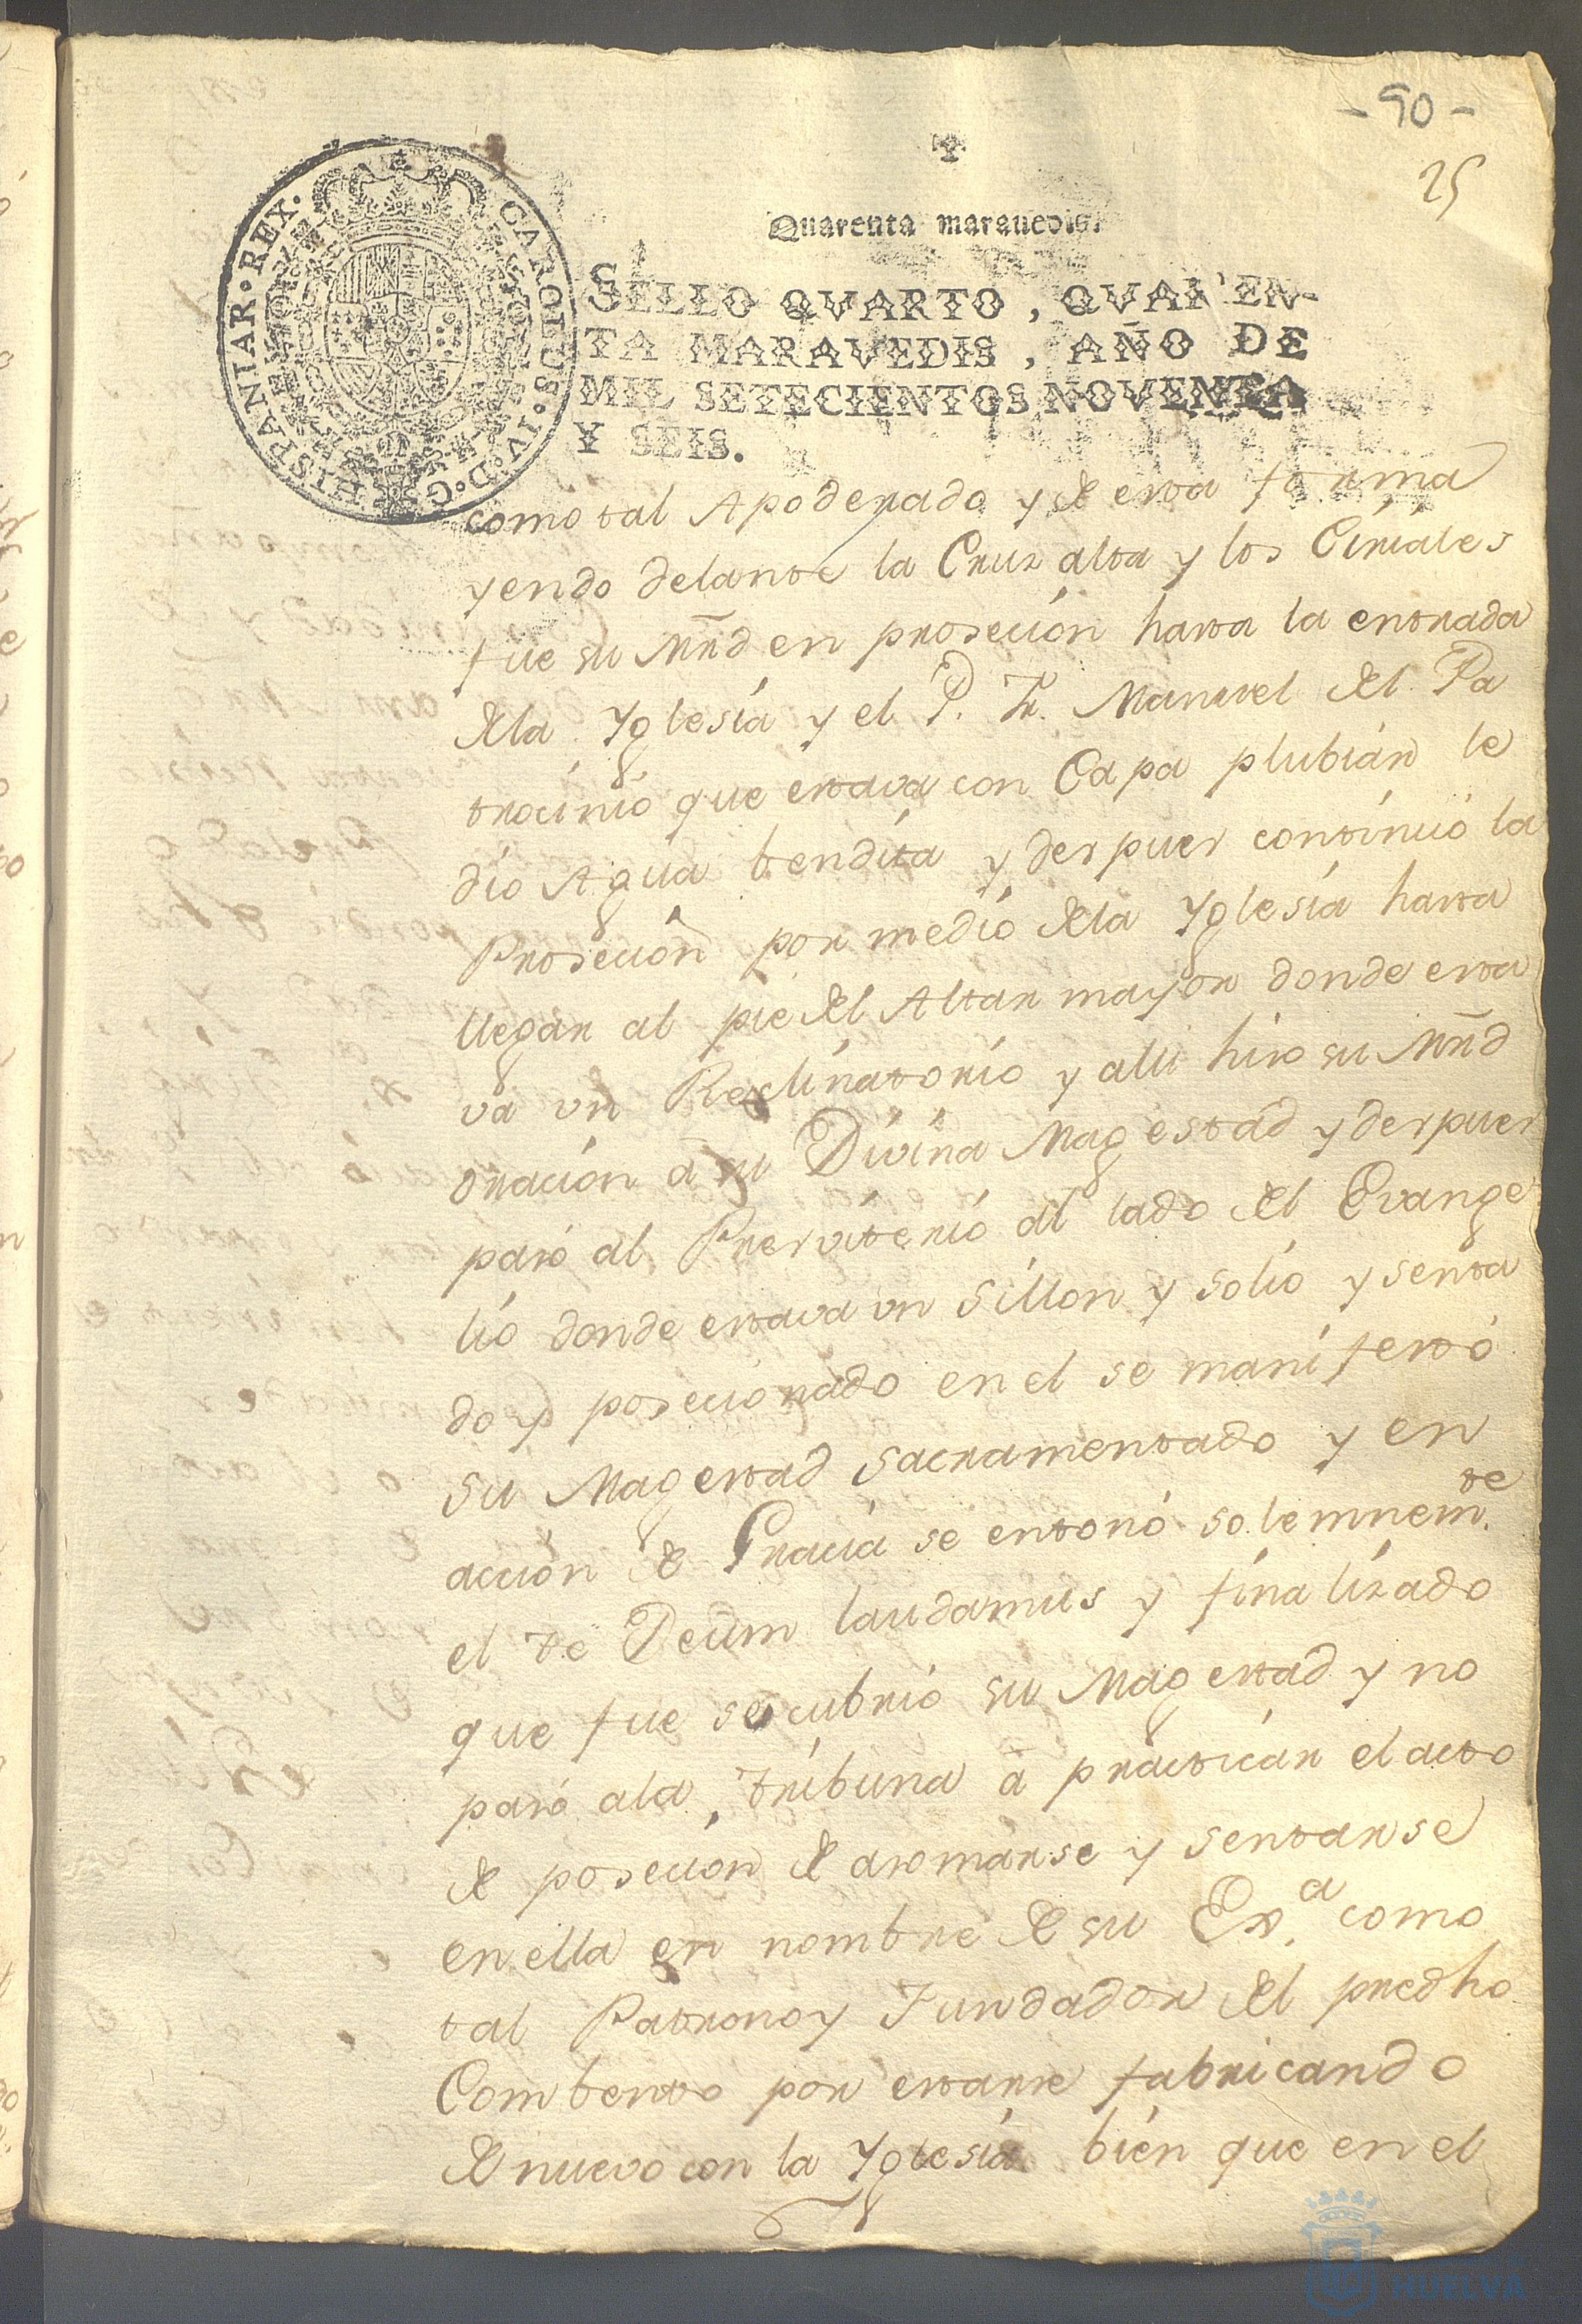 - 90 -
25
Quarenta marauedis.
SELLO QVARTO, QVAREN-
TA MARAVEDIS, AÑO DE
MIL SETECIENTOS NOVENTA
Y SEIS.
CAROLUS·IV·D·G·HISPANIAR·REX·
como tal Apoderado y de esta forma
yendo delante la Cruz alta y los Ciriales
fue su Mrd en prosecion hasta la entrada
dela Yglesia y el P. Fr. Manuel del Pa
trocinio que estava con Capa plubiar le
dio Agua bendita y despues continuó la
Prosecion por medio dela Yglesia hasta
llegar al pie del Altar mayor donde esta
va un Reclinatorio y alli hizo su Mrd
oracion â su Divina Magestad y despues
pasó al Presviterio al lado del Evange
lio donde estava un sillon y solio y senta
do y posecionado en el se manifestó
su Magestad sacramentado y en
accion de Gracia se entonó solemnem.te
el te Deum laudamus y finalizado
que fue se cubrio su Magestad y no
pasó ala tribuna â practicar el acto
de posecion de asomarse y sentarse
en ella en nombre de su Ex.a como
tal Patrono y Fundador del predho
Combento por estarse fabricando
de nuevo con la Yglesia bien que en el
HUELVA